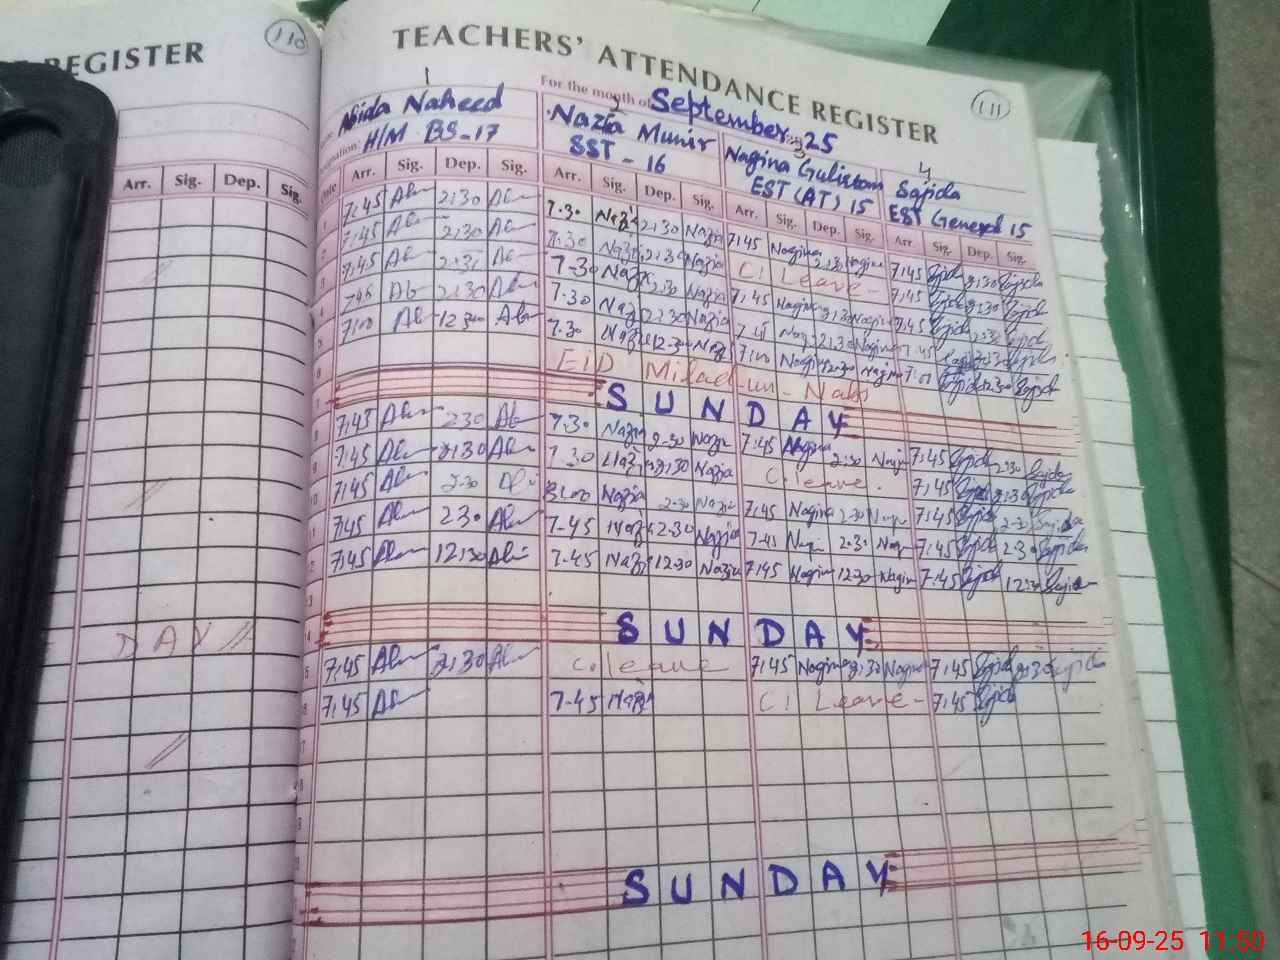 REGISTER
110
TEACHERS' ATTENDANCE REGISTER
111
For the month of September 25
1
Abida Naheed
H/M BS-17
2
Nazia Munir
SST - 16
3
Nagina Gulistan
EST (AT) 15
4
Sajida
EST General 15
Arr. Sig. Dep. Sig.
Date Arr. Sig. Dep. Sig. Arr. Sig. Dep. Sig. Arr. Sig. Dep. Sig. Arr Sig. Dep. Sig.
1 7:45 2:30 7.30 Nazia 2:30 Nazia 7:45 Nagina 2:30 Nagina 7:45 Sajida 2:30 Sajida
2 7:45 2:30 7.30 Nazia 2:30 Nazia C! Leave - 7:45 Sajida 2:30 Sajida
3 7:45 7-30 Nazia 2:30 Nazia 7:45 Nagina 2:30 Nagina 7:45 Sajida 2:30 Sajida
4 7:45 2:30 7.30 Nazia 2:30 Nazia 7:45 Nagina 2:30 Nagina 7:45 Sajida
5 7:00 12:30 7.30 Nazia 12:30 Nazia 7:00 Nagina 12:30 Nagina 7:00 Sajida 12:30 Sajida
6 EiD Milad-un-Nabi
7 SUNDAY
8 7:45 2:30 7.30 Nazia 2:30 Nazia 7:45 Nagina 2:30 Nagina 7:45 Sajida 2:30 Sajida
9 7:45 2:30 7.30 Nazia 2:30 Nazia C. leave. 7:45 Sajida 2:30 Sajida
10 7:45 2:30 8:00 Nazia 2:30 Nazia 7:45 Nagina 2:30 Nagina 7:45 Sajida 2:30 Sajida
11 7:45 2:30 7-45 Nazia 2:30 Nazia 7:45 Nagina 2:30 Nagina 7:45 Sajida 2:30 Sajida
12 7:45 12:30 7-45 Nazia 12:30 Nazia 7:45 Nagina 12:30 Nagina 7:45 Sajida 12:30 Sajida
DAY
SUNDAY
7:45 2:30 C. leave 7:45 Nagina 2:30 Nagina 7:45 Sajida 2:30 Sajida
7:45 7-45 Nazia C! Leave - 7:45 Sajida
SUNDAY
16-09-25 11:50